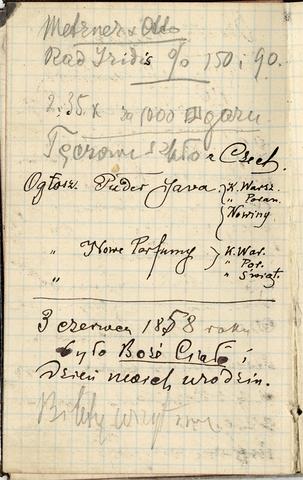 Metzner & Otto
Rad. Iridis % 150 i 90.
2.35. x za 1000
Tęczowe szkło z Czech.
Ogłosz. Puder Java } K. Warsz.
" Poran.
Nowiny
" Nowe Perfumy } K. War.
" Por.
" " Świat.
3 czerwca 1858 roku
było Boże Ciało i
dzień moich urodzin.
Bilety wizytowe